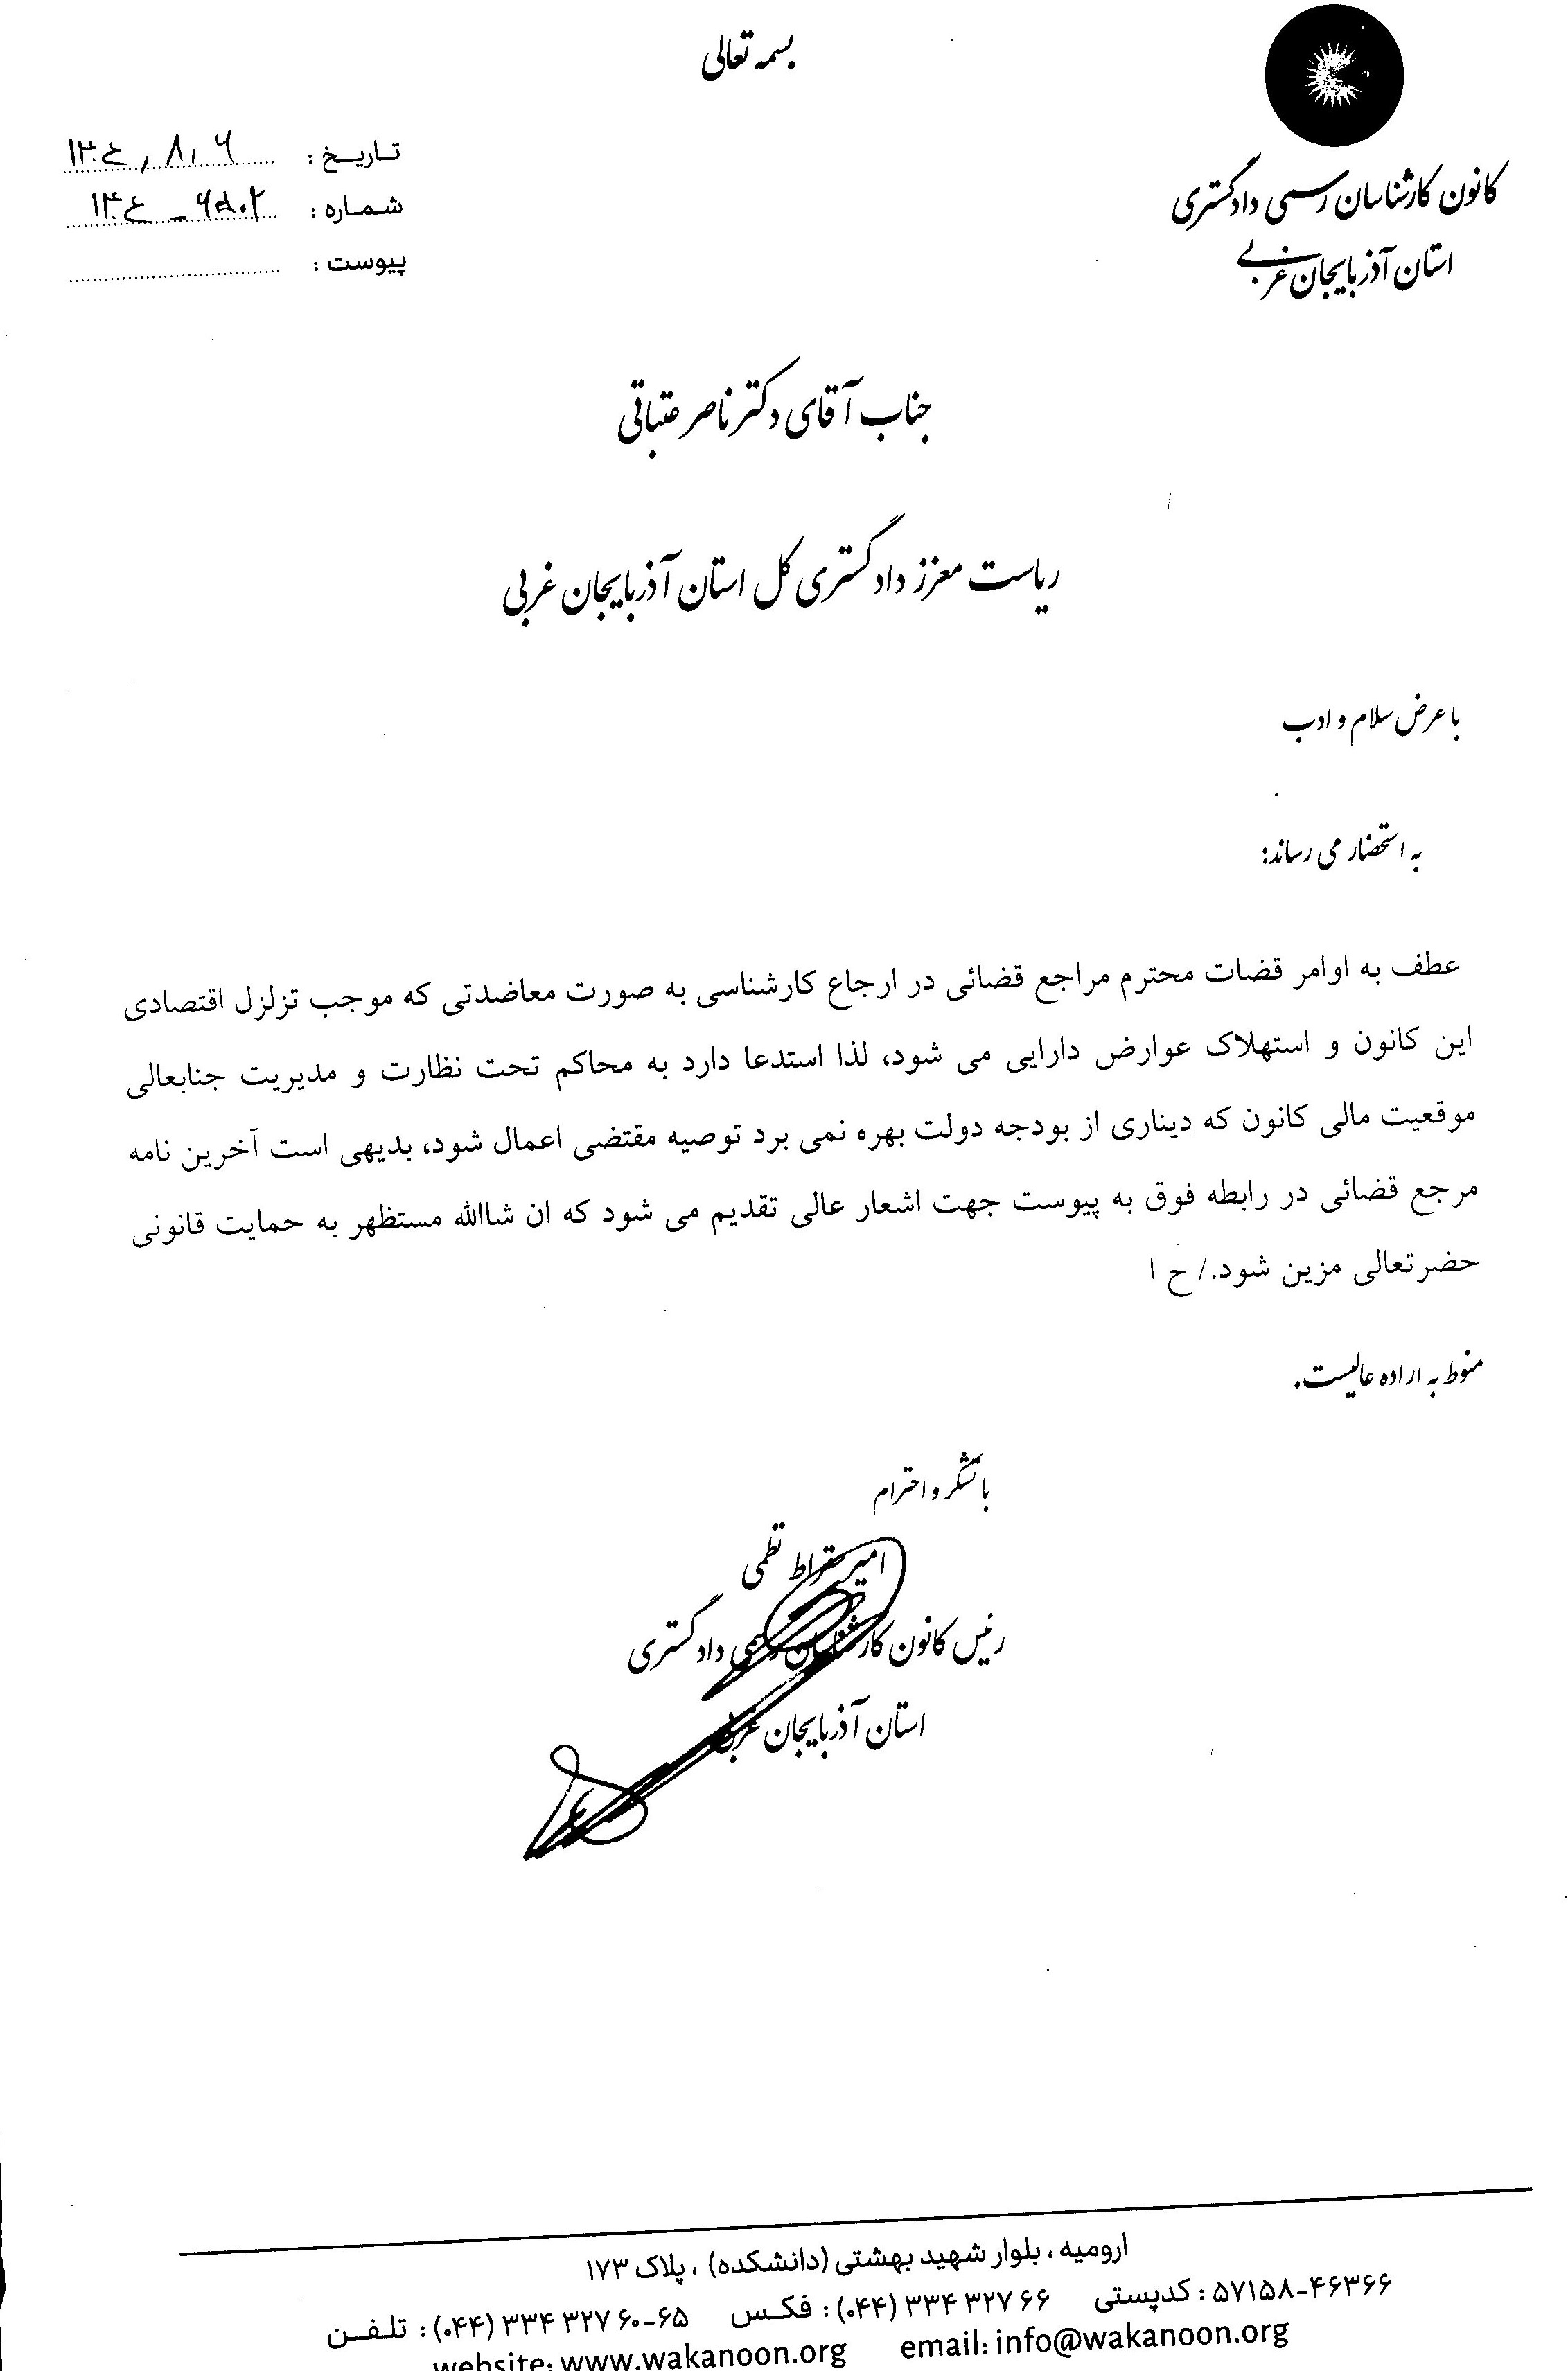 بسمه تعالی
کانون کارشناسان رسمی دادگستری
استان آذربایجان غربی
تاریخ : ۱۴۰۴/۸/۶
شماره : ۱۴۰۴ - ۶۵۰۲
پیوست :
جناب آقای دکتر ناصر عتباتی
ریاست معزز دادگستری کل استان آذربایجان غربی
با عرض سلام و ادب
به استحضار می رساند:
عطف به اوامر قضات محترم مراجع قضائی در ارجاع کارشناسی به صورت معاضدتی که موجب تزلزل اقتصادی
این کانون و استهلاک عوارض دارایی می شود، لذا استدعا دارد به محاکم تحت نظارت و مدیریت جنابعالی
موقعیت مالی کانون که دیناری از بودجه دولت بهره نمی برد توصیه مقتضی اعمال شود، بدیهی است آخرین نامه
مرجع قضائی در رابطه فوق به پیوست جهت اشعار عالی تقدیم می شود که ان شاالله مستظهر به حمایت قانونی
حضرتعالی مزین شود./ ح ا
منوط به اراده عالیست.
با تشکر و احترام
امیر سقراط نظمی
رئیس کانون کارشناسان رسمی دادگستری
استان آذربایجان غربی
ارومیه ، بلوار شهید بهشتی (دانشکده) ، پلاک ۱۷۳
تلفن : (۰۴۴) ۳۳۴ ۳۲۷ ۶۰-۶۵ فکس : (۰۴۴) ۳۳۴ ۳۲۷ ۶۶ کدپستی : ۵۷۱۵۸-۴۶۳۶۶
website: www.wakanoon.org email: info@wakanoon.org